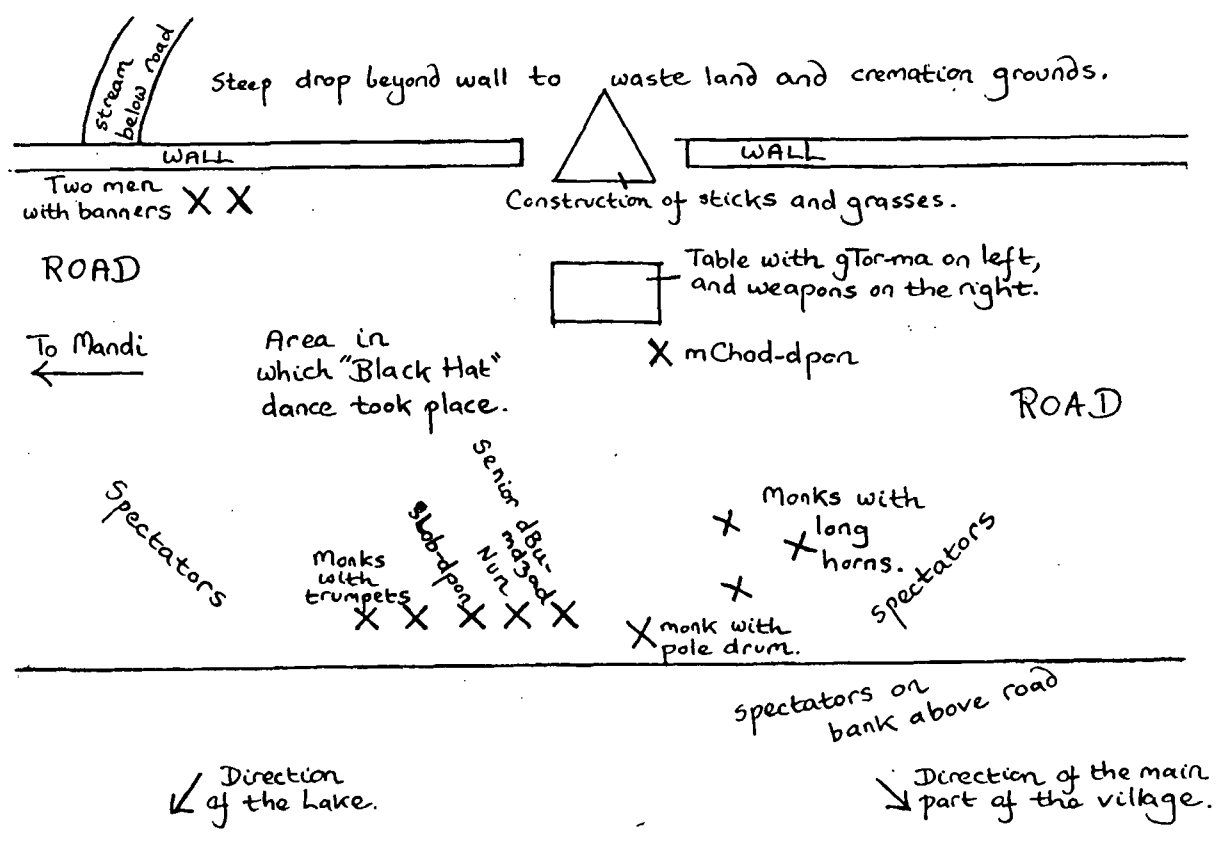 stream
below road
Steep drop beyond wall to waste land and cremation grounds.
WALL
WALL
Two men
with banners
Construction of sticks and grasses.
ROAD
Table with gTor-ma on left,
and weapons on the right.
To Mandi
Area in
which "Black Hat"
dance took place.
mChod-dpon
ROAD
Spectators
Monks
with
trumpets
sLob-dpon
Nun
Senior dBu-
mdzad
Monks with
long
horns.
spectators
monk with
pole drum.
spectators on
bank above road
Direction
of the Lake.
Direction of the main
part of the village.